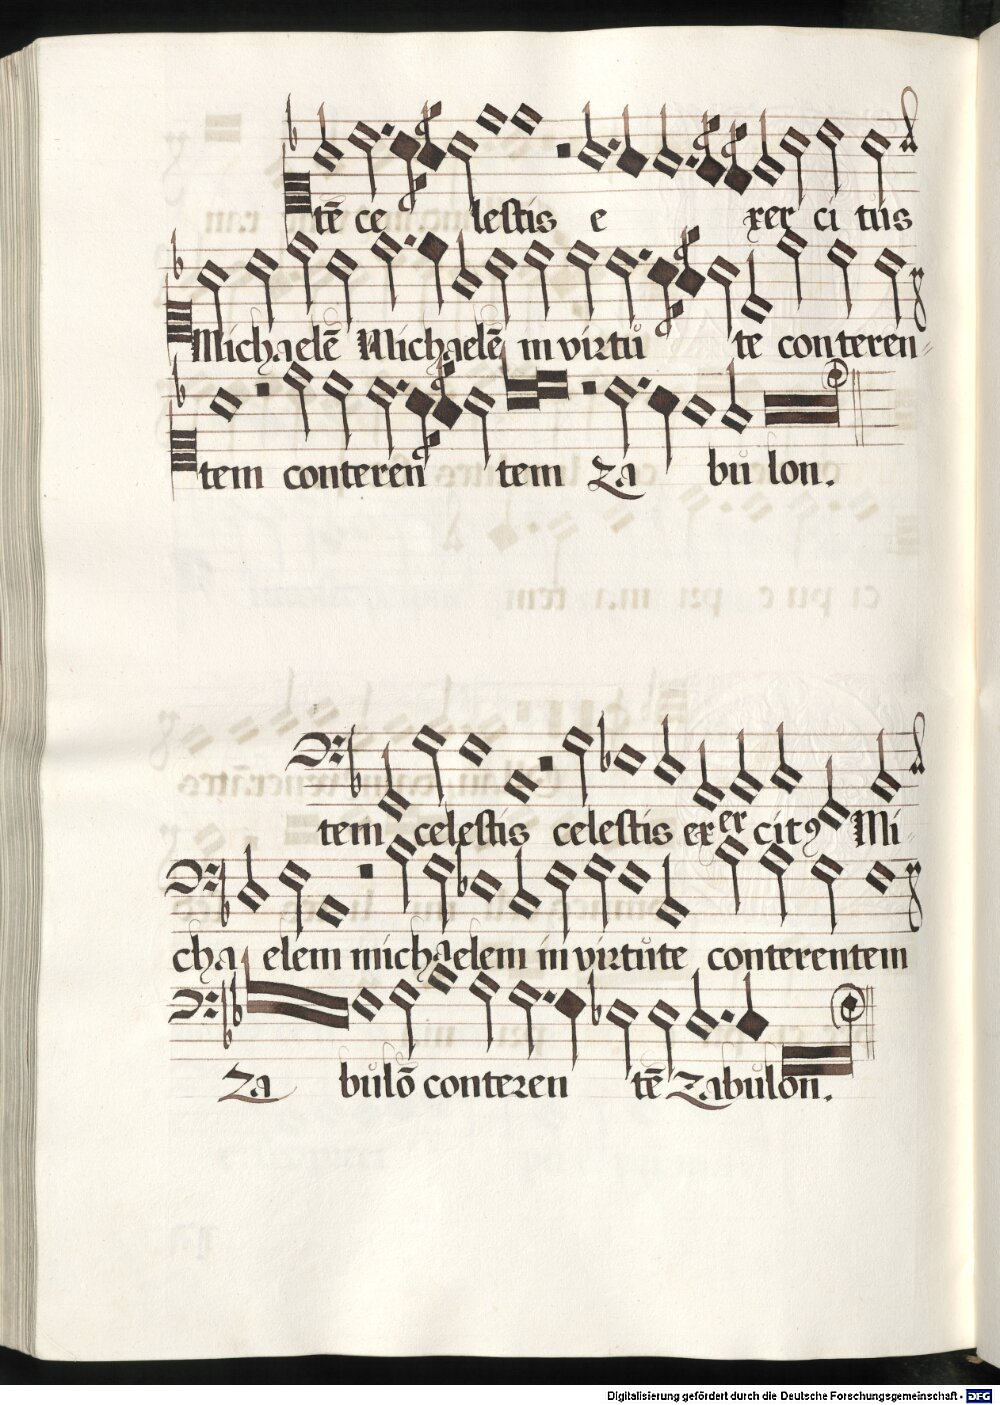 tē ce lestis e xer ci tus
Michaelē Michaelē in virtu te conteren-
tem conteren tem Za bulon.
tem celestis celestis exer citꝰ Mi-
cha elem michaelem in virtute conterentem
Za bulō conteren tē Zabulon.
Digitalisierung gefördert durch die Deutsche Forschungsgemeinschaft - DFG